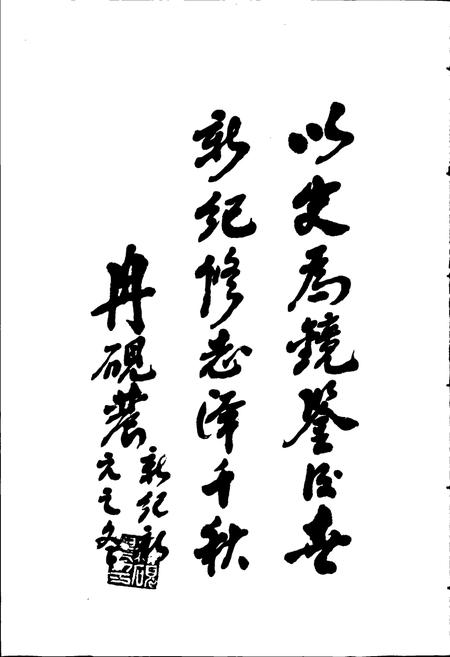 以史为镜鉴后者
新纪修志泽千秋
冉砚农
新纪新
元之冬